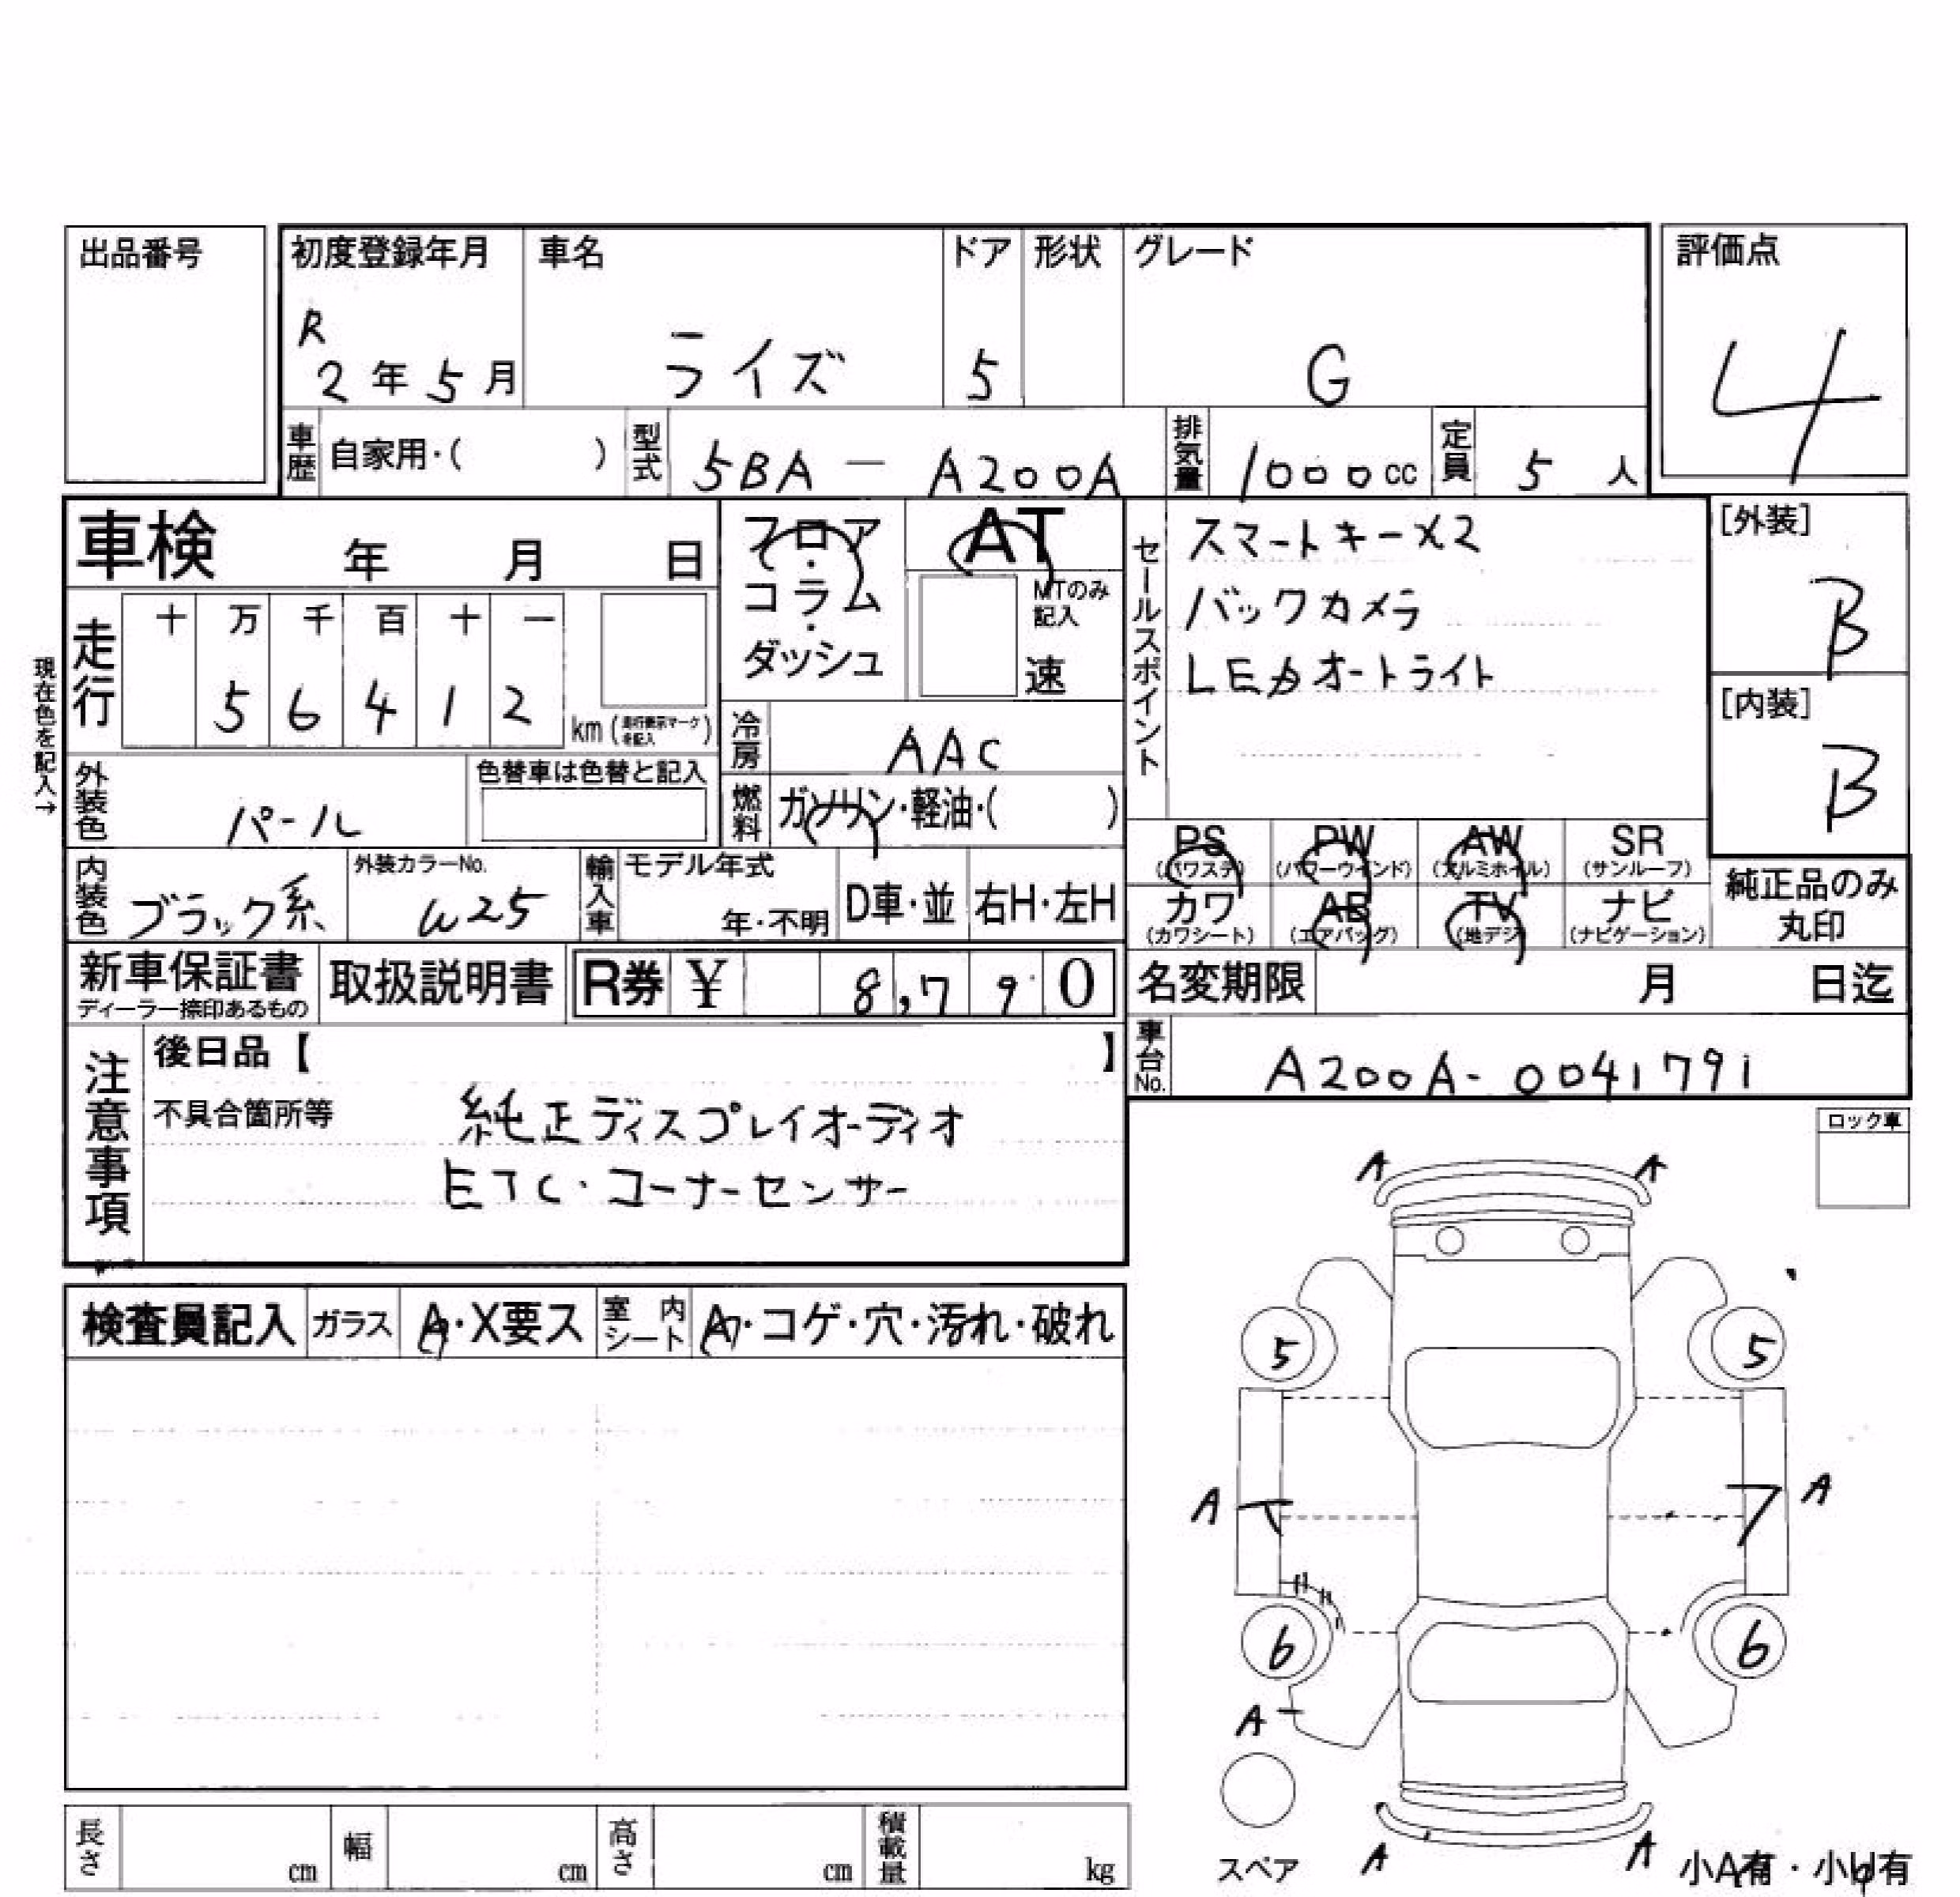 出品番号
初度登録年月 車名 ドア 形状 グレード 評価点
R
2年5月 ライズ 5 G 4
車歴 自家用・( ) 型式 5BA － A200A 排気量 1000cc 定員 5人
車検 年 月 日
フロア・コラム・ダッシュ
AT
MTのみ記入
速
セールスポイント
スマートキーX2
バックカメラ
LEDオートライト
[外装]
B
[内装]
B
現在色を記入→
走行 十 万 千 百 十 一
5 6 4 1 2 km (走行表示マークを記入)
冷房 AAC
燃料 ガソリン・軽油・( )
外装色 パール 色替車は色替と記入
内装色 ブラック系 外装カラーNo. W25 輸入車 モデル年式 年・不明 D車・並 右H・左H
PS (パワステ) PW (パワーウインド) AW (アルミホイル) SR (サンルーフ)
カワ (カワシート) AB (エアバッグ) TV (地デジ) ナビ (ナビゲーション)
純正品のみ
丸印
新車保証書 ディーラー捺印あるもの 取扱説明書 R券 ¥ 8,790
名変期限 月 日迄
車台No. A200A-0041791
注意事項
後日品【 】
不具合箇所等 純正ディスプレイオーディオ
ETC・コーナーセンサー
ロック車
検査員記入 ガラス A・X要ス 室内シート A・コゲ・穴・汚れ・破れ
A A
5 5
A A
6 6
A
スペア A A 小A有・小U有
長さ cm 幅 cm 高さ cm 積載量 kg